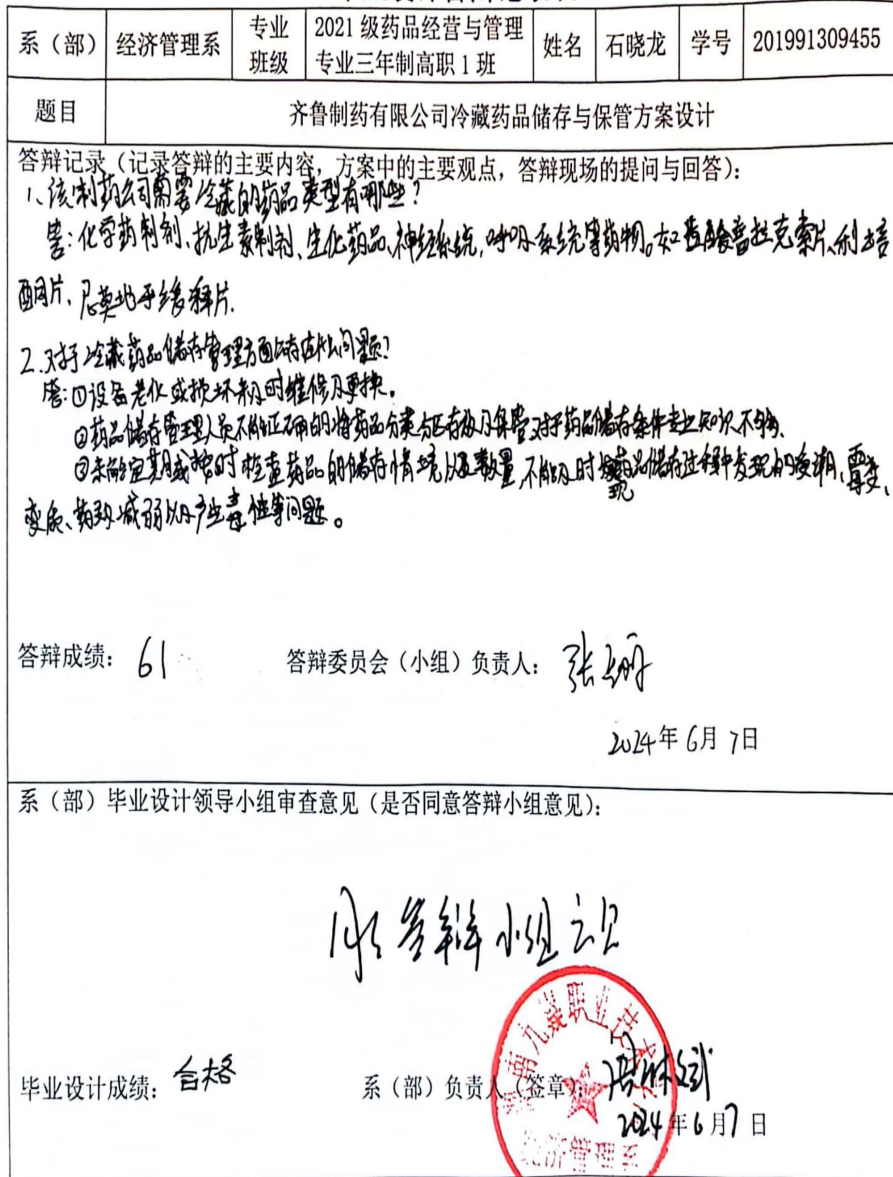 系（部）	经济管理系	专业班级	2021 级药品经营与管理专业三年制高职 1 班	姓名	石晓龙	学号	201991309455
题目	齐鲁制药有限公司冷藏药品储存与保管方案设计
答辩记录（记录答辩的主要内容，方案中的主要观点，答辩现场的提问与回答）：
1、该制药公司需要冷藏的药品类型有哪些？
答：化学药制剂、抗生素制剂、生化药品、神经系统，呼吸系统等药物。如：盐酸普拉克索片、利培
酮片、尼莫地平缓释片.
2.对于冷藏药品储存管理方面存在什么问题？
答：①设备老化或损坏未及时维修及更换。
②药品储存管理人员不能正确的将药品分类分区存放及保管，对于药品储存条件专业知识不够.
③未能定期或按时检查药品的储存情况以及数量，不能及时发现药品储存过程中发现的受潮、霉变、
变质、药效减弱以及产生毒性等问题。
答辩成绩： 61	答辩委员会（小组）负责人： 张
2024年 6月 7日
系（部）毕业设计领导小组审查意见（是否同意答辩小组意见）：
同意答辩小组意见
毕业设计成绩： 合格	系（部）负责人（签章）：
2024年6月7日